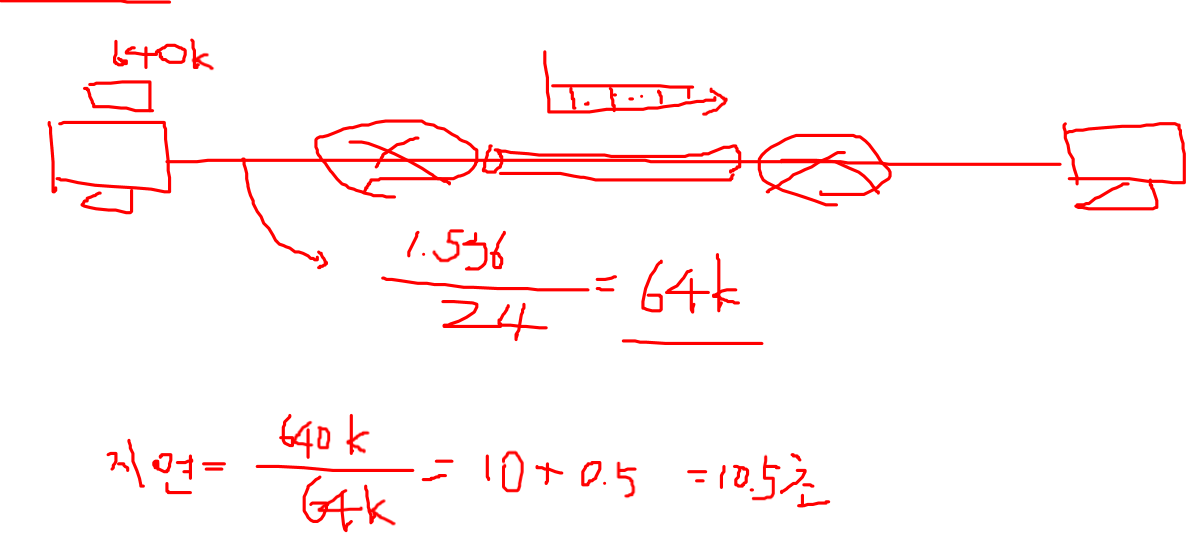 640k
1.536
24
= 64k
지연 = 640k / 64k = 10 + 0.5 = 10.5초